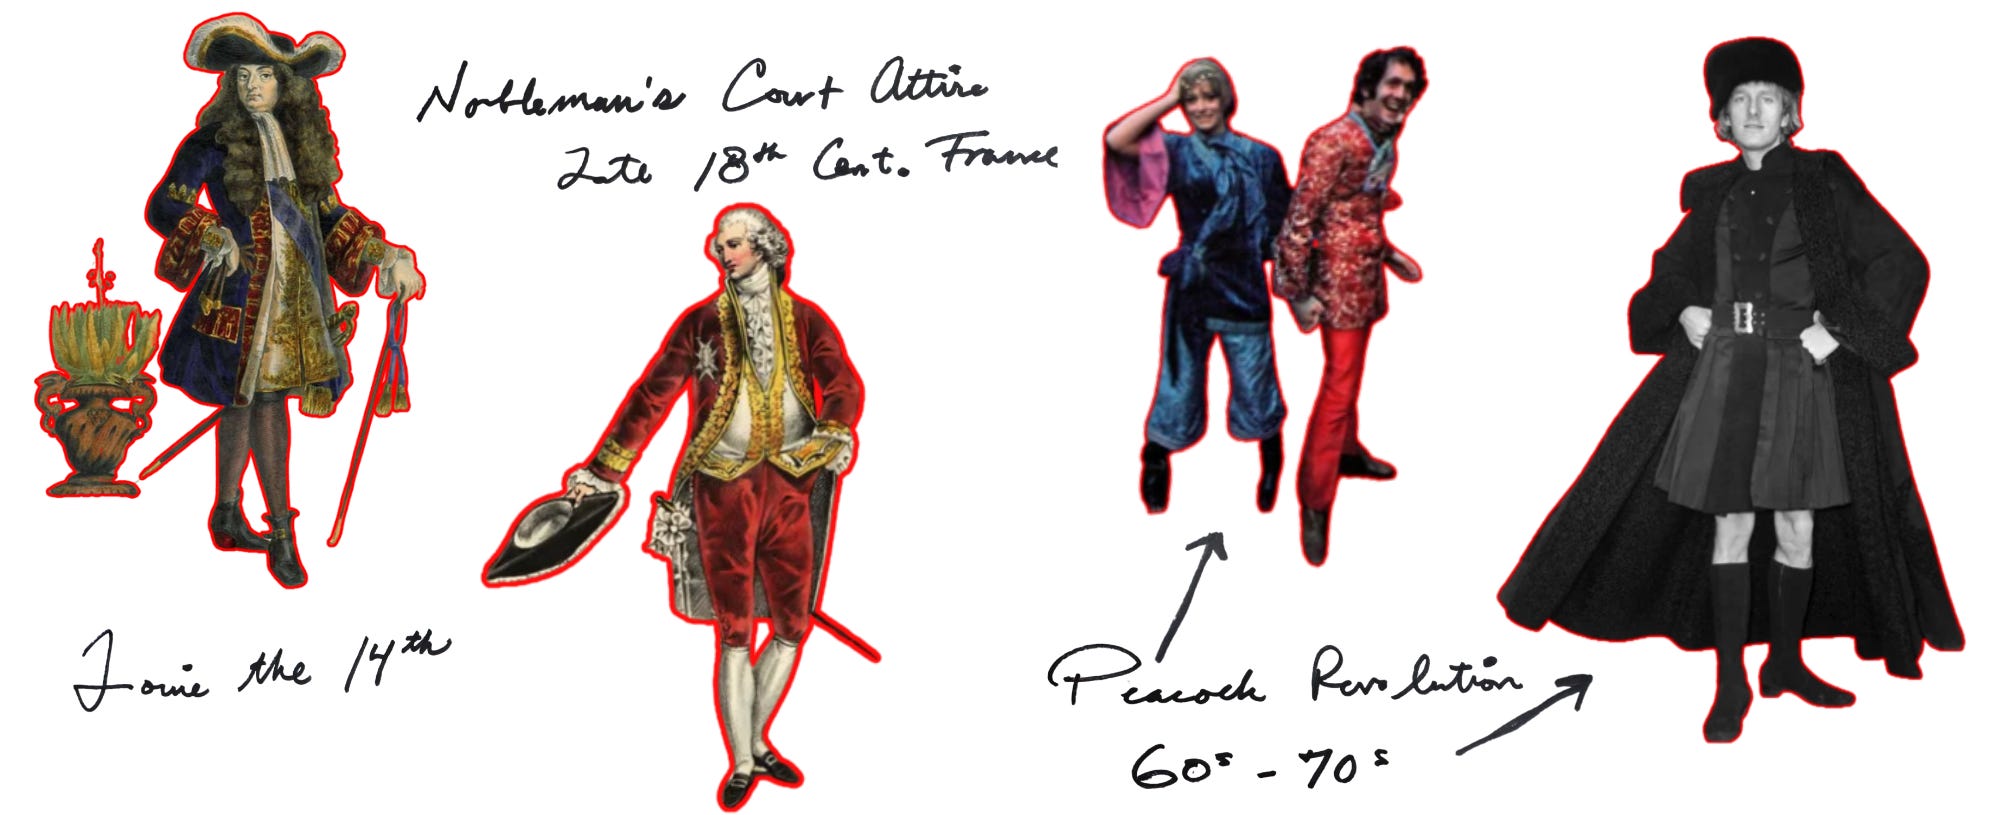 Nobleman's Court Attire
Late 18th Cent. France
Louie the 14th
Peacock Revolution
60s - 70s